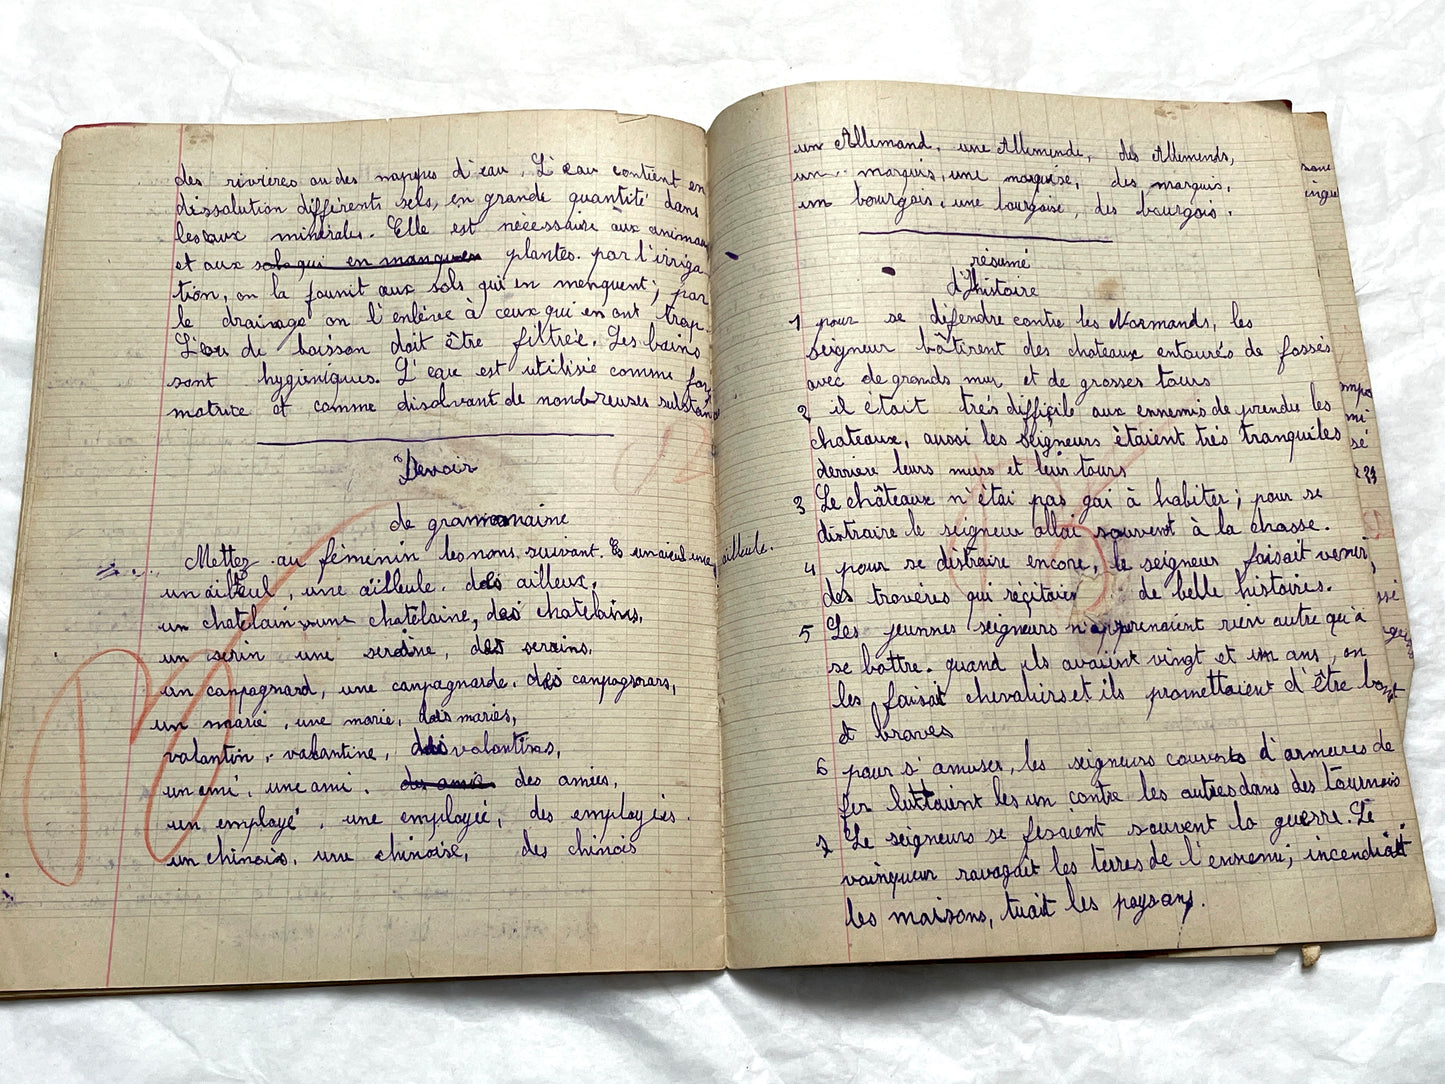 des rivières ou des nappes d'eau. L'eau contient en
dissolution différents sels, en grande quantité dans
les eaux minérales. Elle est nécessaire aux animaux
et aux sols qui en manquen plantes. par l'irriga
tion, on la fournit aux sols qui en menquent; par
le drainage on l'enlève à ceux qui en ont trop.
L'eau de boisson doit être filtrée. Les bains
sont hygièniques. L'eau est utilisée comme for
matrice et comme disolvant de nombreuses substan
Devoir
de grammaire
Mettez au féminin les noms suivant. Es un aieul une
ailleule.
un aileul, une aïlleule. des ailleux.
un chatelain, une chatelaine, des chatelains,
un serin une serine, des serains,
un canpagnard, une canpagnarde. des canpagnars,
un marié, une marie, des mariés,
valantin, valantine, des valantines,
un emi, une ami, des amis des amies,
un employé, une employée, des employiés.
un chinois, une chinoise, des chinois
un Allemand, une Allemende, des Allemends,
un marquis, une marquise, des marquis,
un bourgois, une bourgoise, des bourgois.
résumé
d'Histoire
1 pour se défendre contre les Normands, les
seigneur bâtirent des chateaux entourés de fossés
avec de grands mur et de grosses tours
2 il était très difficile aux ennemis de prendre les
chateaux, aussi les seigneurs ètaient très tranquiles
derriere leurs murs et leur tours
3 Le châteaux n'étai pas gai à habiter; pour se
distraire le seigneur allai souvent à la chasse.
4 pour se distraire encore, le seigneur faisait venir,
des trouvéres qui récitaien de belle histoires.
5 Les jeunnes seigneurs n'apprenaient rien autre qu'à
se battre. quand ils avaient vingt et un ans, on
les faisait chevaliers et ils promettaient d'être bon
et braves
6 pour s'amuser, les seigneurs couverts d'armures de
fer luttaient les un contre les autres dans des tournois
7 Le seigneurs se fesaient souvent la guerre. Le
vainqueur ravageait les terres de l'ennemi; incendiait
les maisons, tuait les paysans.